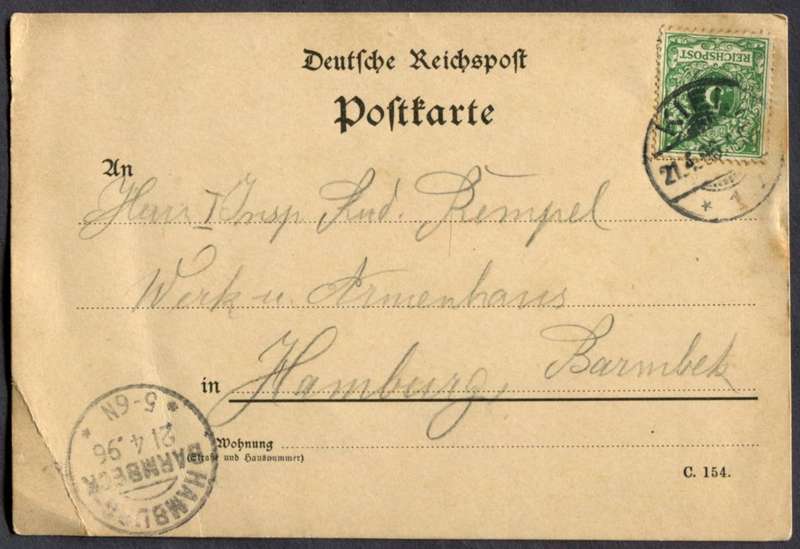 Deutsche Reichspost
REICHSPOST
5
Postkarte
An
21.4.96
* 1
Herrn Insp. Rud. Rempel
Werk u. Armenhaus
in Hamburg, Barmbek
Wohnung
(Straße und Hausnummer)
C. 154.
* 5-6N *
21.4.96
HAMBURG
BARMBECK